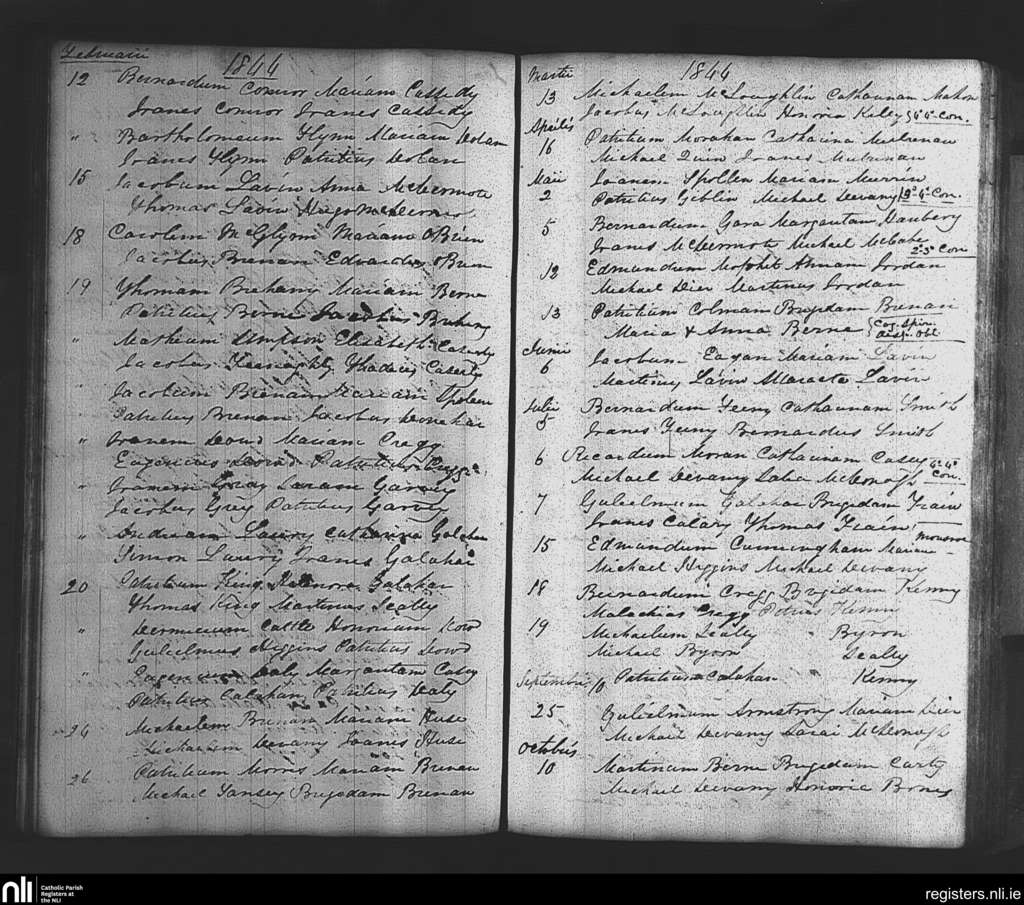 Februarii
1844
12 Bernardum Connor Mariam Cassedy
Joanes Connor Joanes Cassedy
" Bartholomeum Flynn Mariam Dolan
Joanes Flynn Patritius Dolan
15 Jacobum Lavin Anna McDermote
Thomas Lavin Hugo McDermot
18 Carolum McGlynn Mariam OBrien
Jacobus Brenan Edwardus OBrien
19 Thomam Brehany Mariam Berne
Patritius Berne Jacobus Brehany
" Matheum Simpson Elisabeth Caserty
Jacobus Thadeus Caserty
" Jacobum Brenan Mariam Spolen
Patritius Brenan Jacobus Donohai
" Joanem Dowd Mariam Cregg
Eugenius Dowd Patritius Cregg
" Joanem Gray Saram Garvey
Jacobus Grey Patritius Garvey
" Andream Laury Catharina Galahar
Simon Laury Joanes Galahai
20 Patritium King Honora Galahar
Thomas King Martinus Sealy
" Dermicium Cattle Honoriam Dowd
Gulielmus Higgins Patritius Dowd
" Eugenium Daly Margautam Casey
Patritius Calahan Patritius Daly
24 Michaelem Brenan Mariam Huse
Michaelem Devany Joanes Huse
26 Patritium Morris Mariam Brenan
Michael Tansey Brigidam Brenan
Martii 1844
13 Michaelem McLoughlin Catharinam Mahon
Jacobus McLoughlin Honora Kiley 4°4° Con.
Aprilis
16 Patritium Morahan Catharina Mulrenan
Michael Quin Joanes Mulrenan
Maii Joanem Spollen Mariam Murrin
2 Patritius Giblin Michael Devany 3°4° Con.
5 Bernardum Gara Margautam Hanbery
Joanes McDermote Michael McCabe
2°3° Con
12 Edmundum Annam Jordan
Michael Dier Martinus Jordan
13 Patritium Colman Brigidam Brenan
Maria & Anna Berne Cog. Spir. disp. Obt.
Junii Jacobum Eagan Mariam Lavin
6 Martinus Lavin Lavin
Julii Bernardum Feeny Catharinam Smith
5 Joanes Feeny Bernardus Smith
6 Ricardum Moran Catharinam Casey
Michael Devany McDonogh 4°4° Con.
7 Gulielmum Galahai Brigidam Train
Joanes Calary Thomas Train
15 Edmundum Cunningham Mariam
Michael Higgins Michael Devany
18 Bernardum Cregg Brigidam Kenny
Malachias Cregg Petrus Kenny
19 Michaelem Sealy " Byron
Michael Byron Sealy
Septembris 10 Patritium Calahan Kenny
25 Gulielmum Armstrong Mariam Dier
Michael Devany Sarai McDonogh
Octobris
10 Martinum Berne Brigidam Carty
Michael Devany Honorie Berns
nli
Catholic Parish
Registers at
the NLI
registers.nli.ie